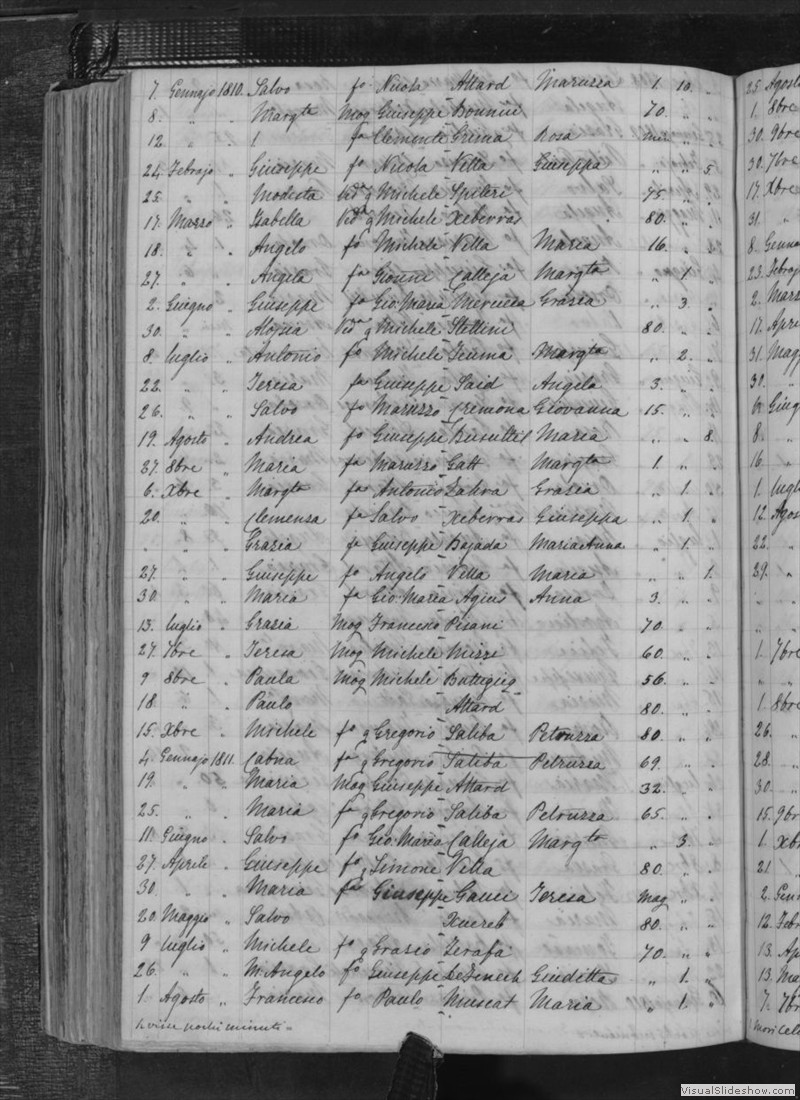 7. Gennajo 1810. Salvo fo Nicola Attard Maruzza 1. 10. „
8. „ „ Margta Mog Giuseppe Bonnici 70. „
12. „ „ 1 fa Clemente Grima Rosa „ „
24. Febrajo „ Giuseppe fo Nicola Villa Giuseppa „ „ 5.
25. „ „ Modesta Vida q Michele Spiteri 75. „ „
17. Marzo „ Izabella Vida q Michele Xeberras 80. „ „
18. „ „ Angelo fo Michele Villa Maria 16. „ „
27. „ „ Angela fa Giovni Calleja Margta „ 1. „
2. Giugno „ Giuseppe fo Gio: Maria Mercieca Grazia „ 3. „
30. „ „ Aloysia Vida q Michele Stellini 80. „ „
8. luglio „ Antonio fo Michele Zeuma Margta „ 2. „
22. „ „ Teresa fa Giuseppe Said Angela 3. „ „
26. „ „ Salvo fo Maruzzo Cremona Giovanna 15. „ „
19. Agosto „ Andrea fo Giuseppe Busuttil Maria „ „ 8.
27. 8bre „ Maria fa Maruzzo Gatt Margta 1. „ „
6. Xbre „ Margta fa Antonio Zahra Grazia „ 1. „
20. „ „ Clemensa fa Salvo Xeberras Giuseppa „ 1. „
„ „ „ Grazia fa Giuseppe Bajada Maria Anna „ 1. „
27. „ „ Giuseppe fo Angelo Villa Maria „ „ 1.
30. „ „ Maria fa Gio: Maria Agius Anna 3. „ „
13. luglio „ Grazia Mog Francesco Pisani 70. „ „
27. 7bre „ Teresa Mog Michele Mizzi 60. „ „
9 8bre „ Paula Mog Michele Buttigieg 56. „ „
18 „ „ Paulo Attard 80. „ „
15. Xbre „ Michele fo q Gregorio Saliba Petruzza 80. „ „
4. Gennajo 1811. fa q Gregorio Saliba Petruzza 69. „ „
19. „ „ Maria Mog Giuseppe Attard 32. „ „
25. „ „ Maria fa q Gregorio Saliba Petruzza 65. „ „
11. Giugno „ Salvo fo Gio: Maria Calleja Margta „ 3. „
27. Aprile „ Giuseppe fo q Simone Villa 80. „ „
30. „ „ Maria fa Giuseppe Gauci Teresa „ „
20. Maggio „ Salvo Xuereb 80. „ „
9 luglio „ Michele fo q Grazio Zerafa 70. „ „
26. „ „ M: Angelo fo Giuseppe Giuditta „ 1. „
1. Agosto „ Francesco fo Paulo Muscat Maria „ 1. „
1. visse pochi minuti „
25. Agosto
1. 8bre
30. 9bre
30. 7bre
17. Xbre
31. „
8. Gennajo
23. Febrajo
2. Marzo
17. Aprile
31. Maggio
30. „
6. Giugno
8. „
16. „
1. luglio
12. Agosto
22. „
29. „
1. 7bre
1. 8bre
26. „
28. „
30. „
15. 9bre
1. Xbre
21 „
2. Gen
12. Febr
13. Ap
13. Ma
7. 7br
VisualSlideshow.com